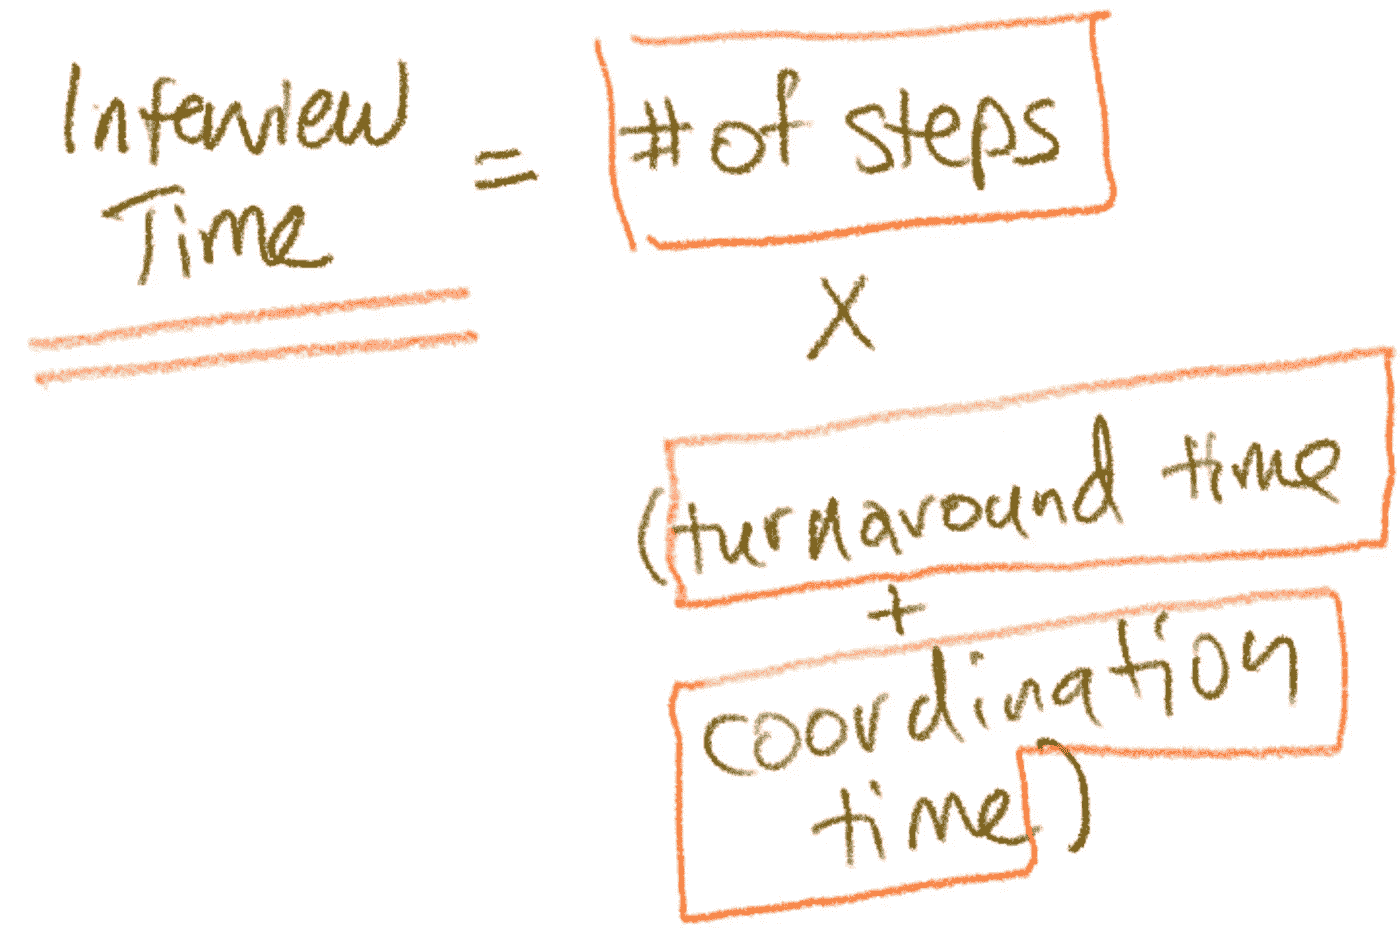 Interview
Time
=
# of steps
X
(turnaround time
+
coordination
time)